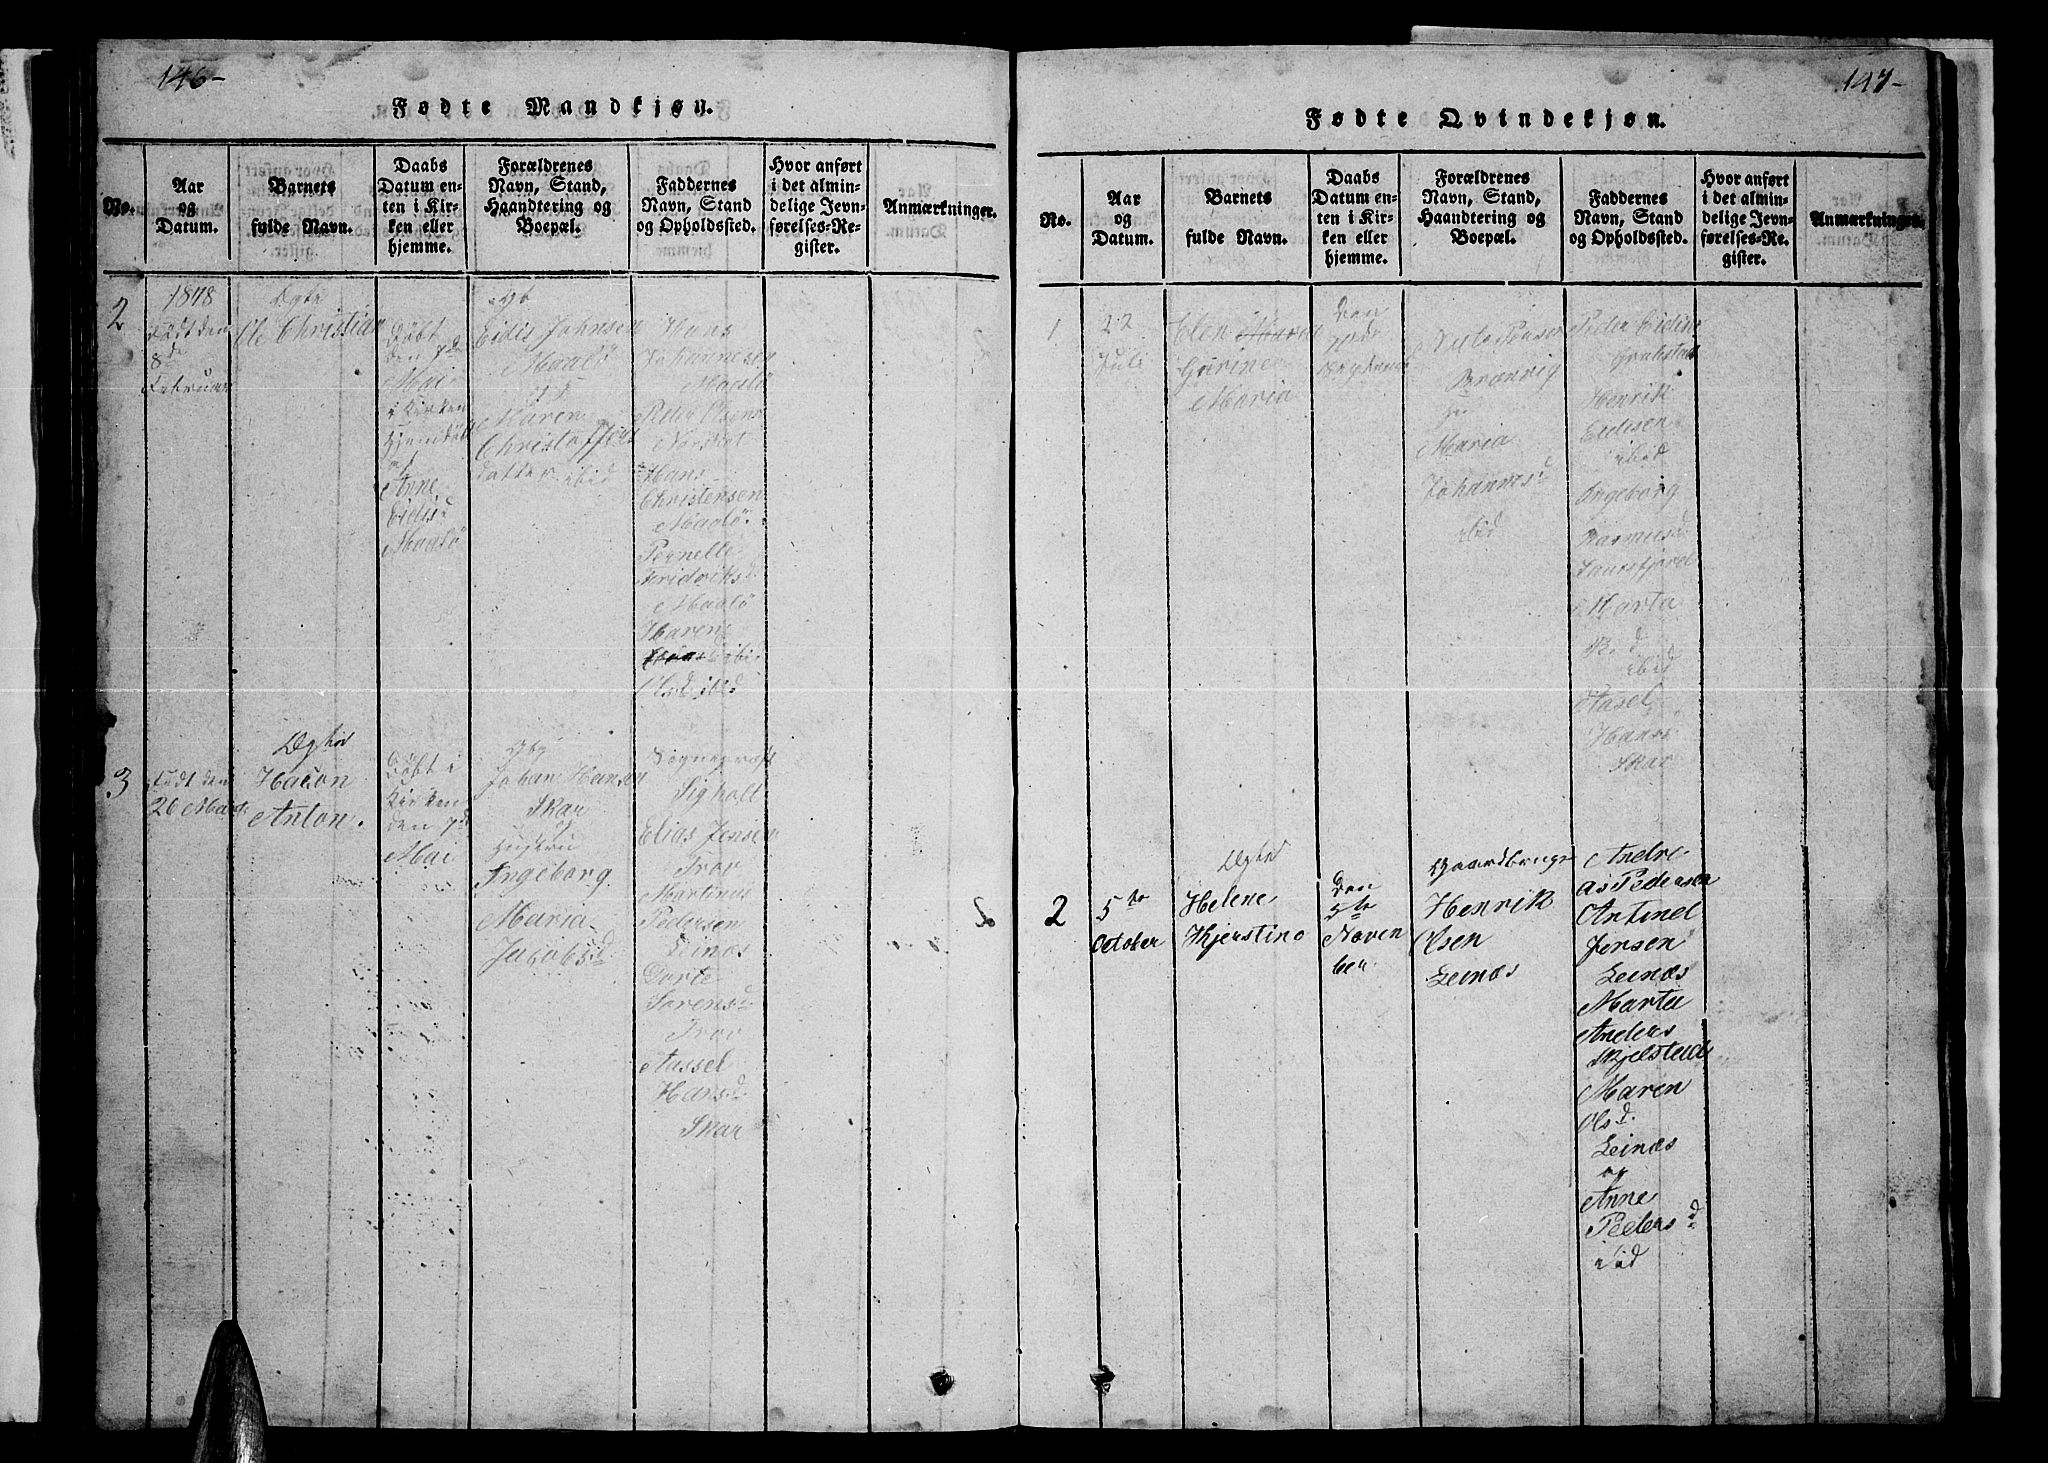 146-
Fødte Mandkjøn.
No.
Aar
og
Datum.
Barnets
fulde Navn.
Daabs
Datum en-
ten i Kir-
ken eller
hjemme.
Forældrenes
Navn, Stand,
Haandtering og
Boepæl.
Faddernes
Navn, Stand
og Opholdssted.
Hvor anført
i det almin-
delige Jevn-
førelses-Re-
gister.
Anmærkninger.
2
1878
Født den
8de
Februar
Ægte
Ole Christian
Døbt
den 7de
Mai
i Kirken
Hjemdøbt
af
Anne
Eidisd
Maalø
Eidis Johnsen
Maalø
Karen
Christoffers
datter ibid
Hans
Johannesen
Maalø
Peder Olsen
Hans
Christensen
Maalø
Pernelle
Fridriksd.
Maalø
Maren
Olsd ibid
3
Født den
26 Marts
Ægte
Hacon
Anton.
Døbt i
Kirken
den 7de
Mai
Johan Hansen
Skar
og
Hustru
Ingeborg
Maria
Jacobsd
Sogneprest
Sigholt
Elias Jensen
Trov
Martinus
Pedersen
Leinæs
Dorte
Sørensd
Trov
Aassel
Hansd.
Skar
147-
Fødte Qvindekjøn.
No.
Aar
og
Datum.
Barnets
fulde Navn.
Daabs
Datum en-
ten i Kir-
ken eller
hjemme.
Forældrenes
Navn, Stand,
Haandtering og
Boepæl.
Faddernes
Navn, Stand
og Opholdssted.
Hvor anført
i det almin-
delige Jevn-
førelses-Re-
gister.
Anmærkninger.
1
22
Juli
Elen Maria
Gurine
Maria
Den
Brænvig
Maria
Johannesd
ibid
Peder Eidisen
Henrik
Eidisen
ibid
Ingeborg
Rasmusd
Marta
R. d
ibid
Aasel
Hansd
Skar
2
5te
October
Ægte
Helene
Kjerstina
Den
5te
Novem
ber
Gaardbruger
Henrik
Olsen
Leinæs
Andre-
as Pedersen
Antinel
Jensen
Leinæs
Marta
Anders
Kjelstad
Maren
Olsd.
Leinæs
og
Anne
Pedersd
ibid